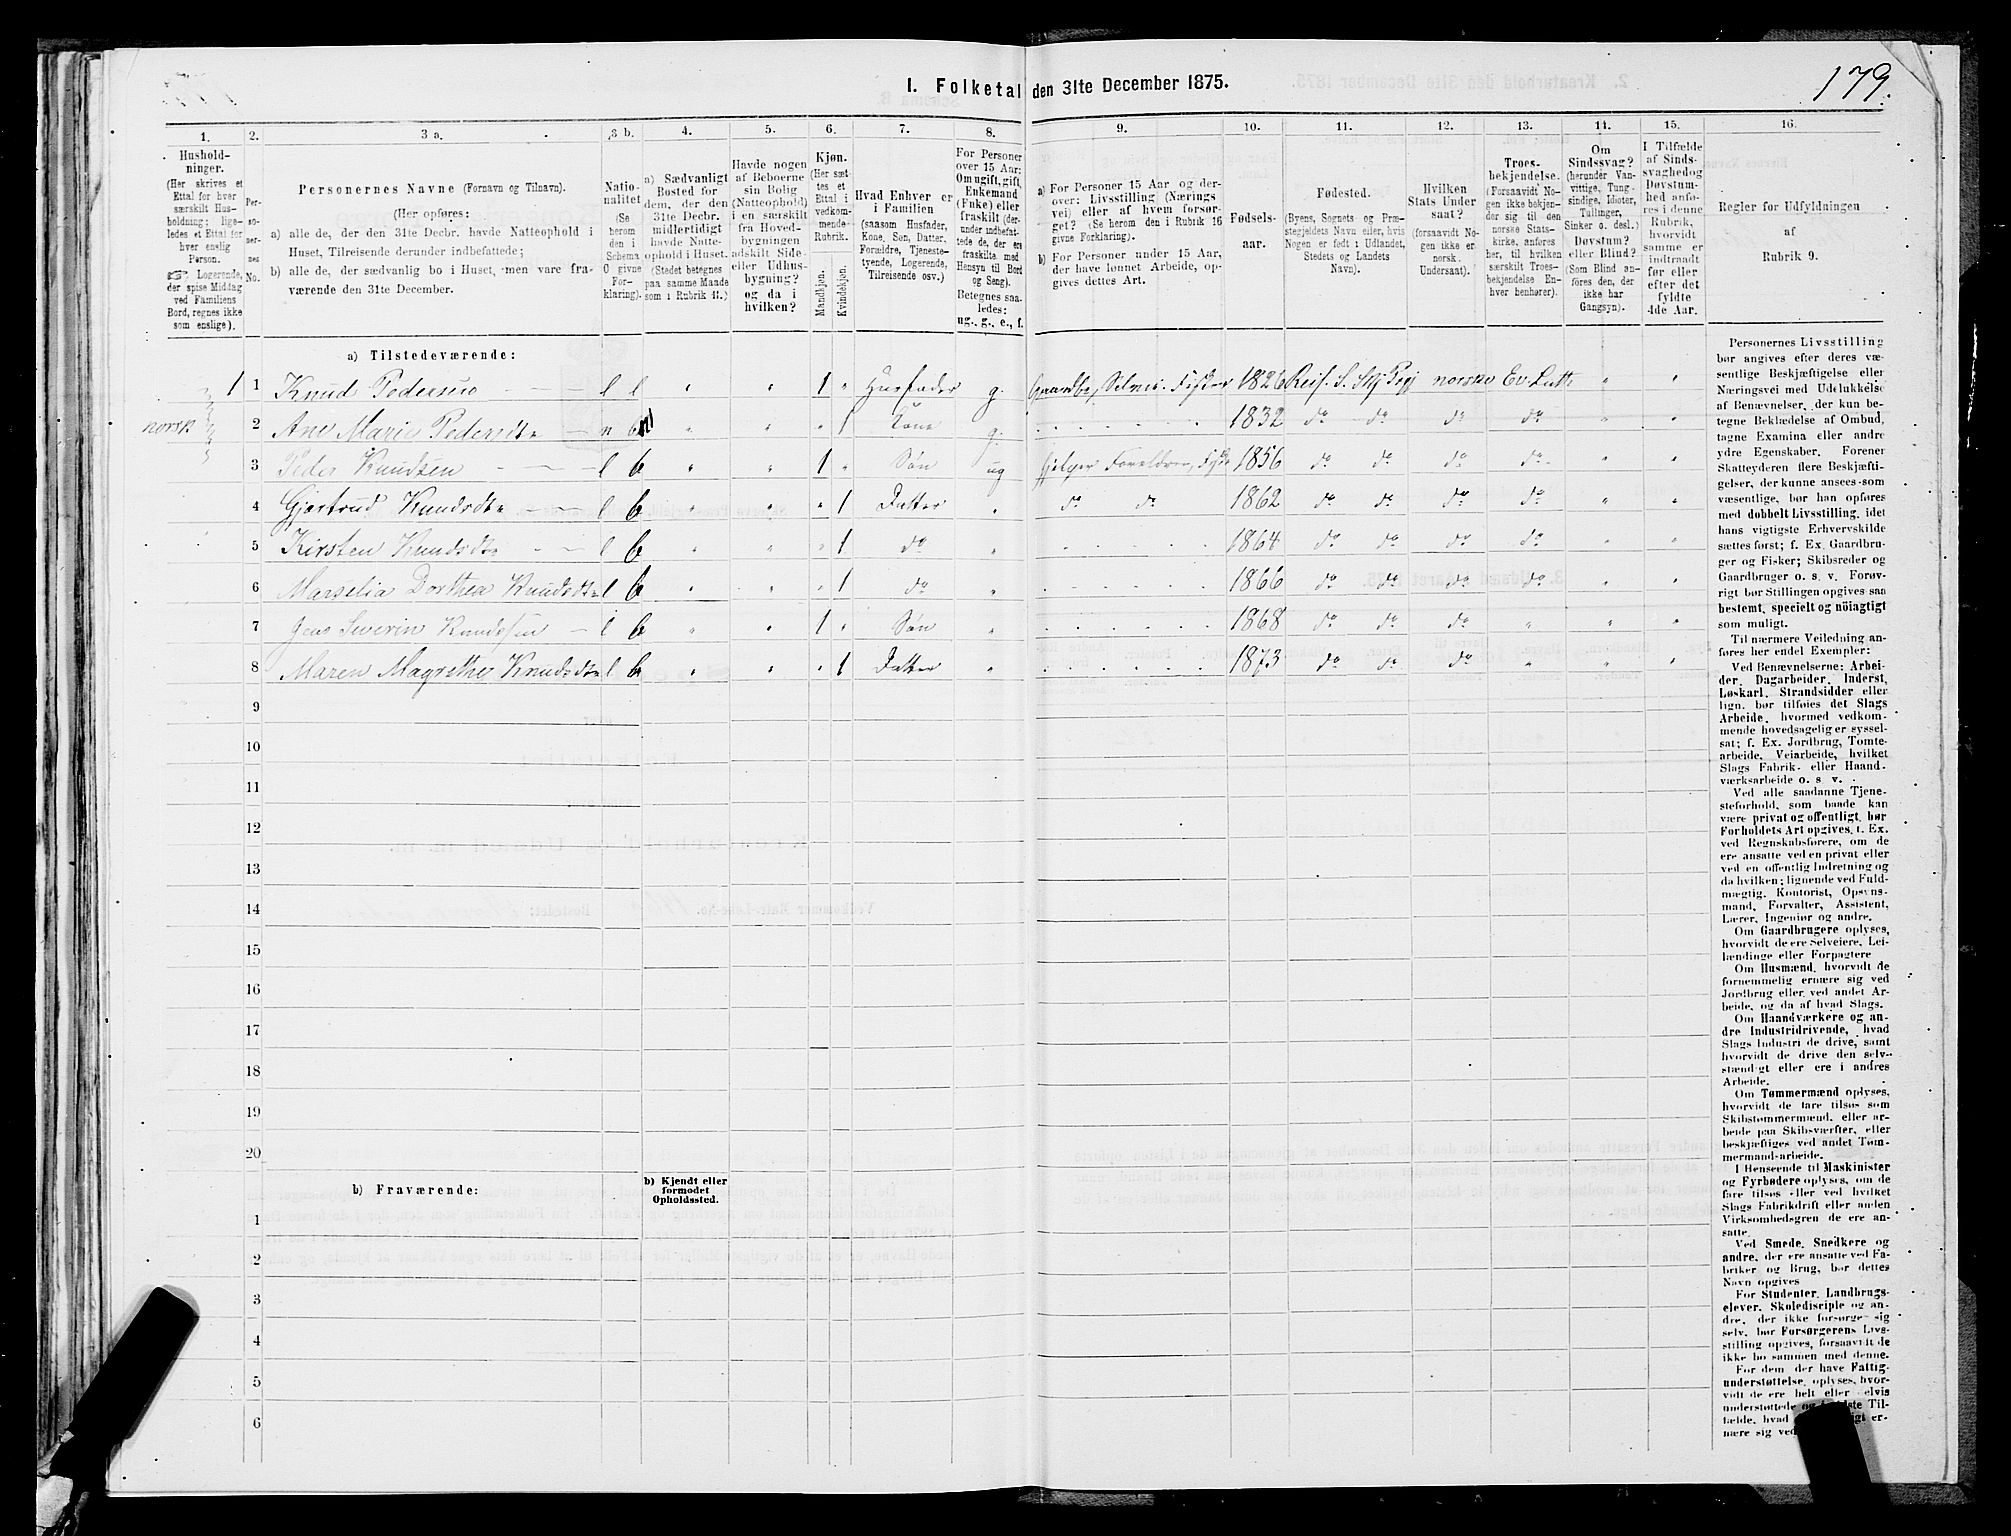 I. Folketal den 31te December 1875.
179.
1. 2. 3 a. 3 b. 4. 5. 6. 7. 8. 9. 10. 11. 12. 13. 14. 15. 16.
Hushold-
ninger.
(Her skrives et
Ettal for hver
særskilt Hus-
holdning; lige-
ledes et Ettal for
hver enslig
Person.
Logerende,
der spise Middag
ved Familiens
Bord, regnes ikke
som enslige).
Per-
so-
ner-
nes
No.
Personernes Navne (Fornavn og Tilnavn).
(Her opføres:
a) alle de, der den 31te Decbr. havde Natteophold i
Huset, Tilreisende derunder indbefattede;
b) alle de, der sædvanlig bo i Huset, men vare fra-
værende den 31te December.
Natio-
nalitet
(Se
herom
den i
Schema
O givne
For-
klaring).
a) Sædvanligt
Bosted for
dem, der den
31te Decbr.
midlertidigt
havde Natte-
ophold i Huset.
(Stedet betegnes
paa samme Maade
som i Rubrik 11.)
Havde nogen
af Beboerne
sin Bolig
(Natteophold)
i en særskilt
fra Hoved-
bygningen
adskilt Side-
eller Udhus-
bygning?
og da i
hvilken?
Kjøn.
(Her sæt-
tes et
Ettal i
vedkom-
mende
Rubrik.
Mandkjøn.
Kvindekjøn.
Hvad Enhver er
i Familien
(saasom Husfader,
Kone, Søn, Datter,
Forældre, Tjeneste-
tyende, Logerende,
Tilreisende osv.)
For Personer
over 15 Aar:
Om ugift, gift,
Enkemand
(Enke) eller
fraskilt (der-
under indbefat-
tede de, der ere
fraskilte med
Hensyn til Bord
og Seng).
Betegnes saa-
ledes:
ug., g., e., f.
a) For Personer 15 Aar og der-
over: Livsstilling (Nærings
vei) eller af hvem forsør-
get? (Se herom den i Rubrik 16
givne Forklaring).
b) For Personer under 15 Aar,
der have lønnet Arbeide, op-
gives dettes Art.
Fødsels-
aar.
Fødested.
(Byens, Sognets og Præ-
stegjeldets Navn eller, hvis
Nogen er født i Udlandet,
Stedets og Landets
Navn).
Hvilken
Stats Under
saat?
(forsaavidt No-
gen ikke er
norsk
Undersaat).
Troes-
bekjendelse.
(Forsaavidt No-
gen ikke bekjen-
der sig til den
norske Stats-
kirke, anføres
her, til hvilken
særskilt Troes-
bekjendelse En-
hver henhører).
Om
Sindssvag?
(herunder Van-
vittige, Tung-
sindige, Idioter,
Tullinger,
Sinker o. desl.)
Døvstum?
eller Blind?
(Som Blind an-
føres den, der
ikke har
Gangsyn).
I Tilfælde
af Sinds-
svaghed og
Døvstum-
hed anfø-
res i denne
Rubrik,
hvorvidt
samme er
indtraadt
før eller
efter det
fyldte
4de Aar.
Regler for Udfyldningen
af
Rubrik 9.
a) Tilstedeværende:
1 1 Knud Pedersen l l " " 1 " Husfader g. Gaardbr, Selvei. Fisker 1826 norske Ev. Luth " "
norsk 2 Ane Marie Pedersdtr n " " " 1 Kone g. 1832 do do do do " "
3 Peder Knudsen l b " " 1 " Søn ug hjelper Forældrene, 1856 do do do do " "
4 Gjertrud Knudsdtr l b " " " 1 Datter " do do 1862 do do do do " "
5 Kirsten Knudsdtr l b " " " 1 do " 1864 do do do do " "
6 Marselia Dorthea Knudsdtr l b " " " 1 do " 1866 do do do do " "
7 Jens Severin Knudsen l b " " 1 " Søn " 1868 do do do " " "
8 Maren Magrethe Knudsdtr l b " " " 1 Datter " 1873 do do do " " "
9
10
11
12
13
14
15
16
17
18
19
20
b) Fraværende:
b) Kjendt eller
formodet
Opholdssted.
1
2
3
4
5
6
Personernes Livsstilling
bør angives efter deres væ-
sentlige Beskjæftigelse eller
Næringsvei med Udelukkelse
af Benævnelser, der kun be-
tegne Beklædelse af Ombud,
tagne Examina eller andre
ydre Egenskaber. Forener
Skatteyderen flere Beskjæfti-
gelser, der kunne ansees som
væsentlige, bør han opføres
med dobbelt Livsstilling, idet
hans vigtigste Erhvervskilde
sættes først; f. Ex. Gaardbru-
ger og Fisker; Skibsreder og
Gaardbruger o. s. v. Forøv-
rigt bør Stillingen opgives saa
bestemt, specielt og nöiagtigt
som muligt.
Til nærmere Veiledning an-
føres her endel Exempler:
Ved Benævnelserne: Arbei-
der, Dagarbeider, Inderst,
Løskarl, Strandsidder eller
lign. bør tilføies det Slags
Arbeide, hvormed vedkom-
mende hovedsagelig er syssel-
sat; f. Ex. Jordbrug, Tomte-
arbeide, Veiarbeide, hvilket
Slags Fabrik- eller Haand-
værksarbeide o. s. v.
Ved alle saadanne Tjene-
steforhold, som baade kan
være privat og offentligt, bør
Forholdets Art opgives, t. Ex.
ved Regnskabsførere, om de
ere ansatte ved en privat eller
ved en offentlig Indretning og
da hvilken; lignende ved Fuld-
mægtig, Kontorist, Opsyns-
mand, Forvalter, Assistent,
Lærer, Ingeniør og andre.
Om Gaardbrugere oplyses,
hvorvidt de ere Selveiere, Lei-
lændinge eller Forpagtere
Om Husmænd, hvorvidt de
fornemmelig ernære sig ved
Jordbrug eller ved andet Ar-
beide, og da af hvad Slags.
Om Haandværkere og an-
dre Industridrivende, hvad
Slags Industri de drive, samt
hvorvidt de drive den selv-
stændigt eller ere i andres
Arbeide.
Om Tømmermænd oplyses,
hvorvidt de fare tilsøs som
Skibstømmermænd, eller ar-
beide paa Skibsværfter, eller
beskjæftiges ved andet Tøm-
mermandarbeide.
I Henseende til Maskinister
og Fyrbødere oplyses, om de
fare tilsøs eller ved hvilket
Slags Fabrikdrift eller anden
Virksomhedsgren de ere an-
satte.
Ved Smede, Snedkere og
andre, der ere ansatte ved Fa-
briker og Brug, bør dettes
Navn opgives
For Studenter, Landbrugs-
elever, Skoledisciple og an-
dre, der ikke forsørge sig
selv, bør Forsørgerens Livs-
stilling opgives, forsaavidt de
ikke bo sammen med denne.
For dem, der have Fattig-
understøttelse, oplyses, hvor-
vidt de ere helt eller delvis
understøttede og i sidste Til-
fælde, hvad
nære sig ved